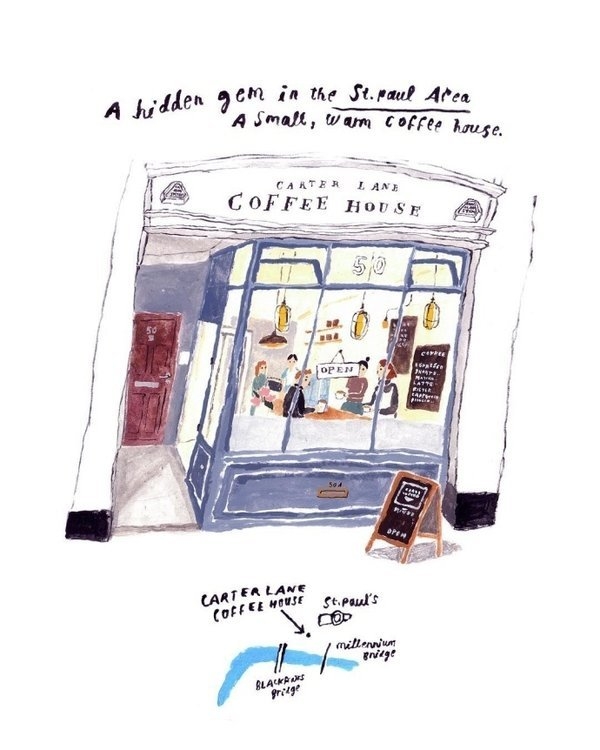 A hidden gem in the St. paul Area
A small, warm coffee house.
CARTER LANE
COFFEE HOUSE
50
50
OPEN
COFFEE
ESPRESSO
LATTE
50A
OPEN
CARTER LANE
COFFEE HOUSE
St. Paul's
millennium
Bridge
BLACKFRIARS
Bridge